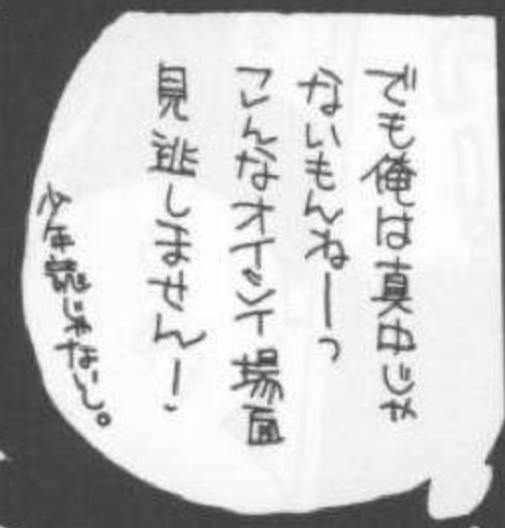 でも俺は真中じゃ
ないもんねーっ
こんなオイシイ場面
見逃しません!
少年誌じゃないし。